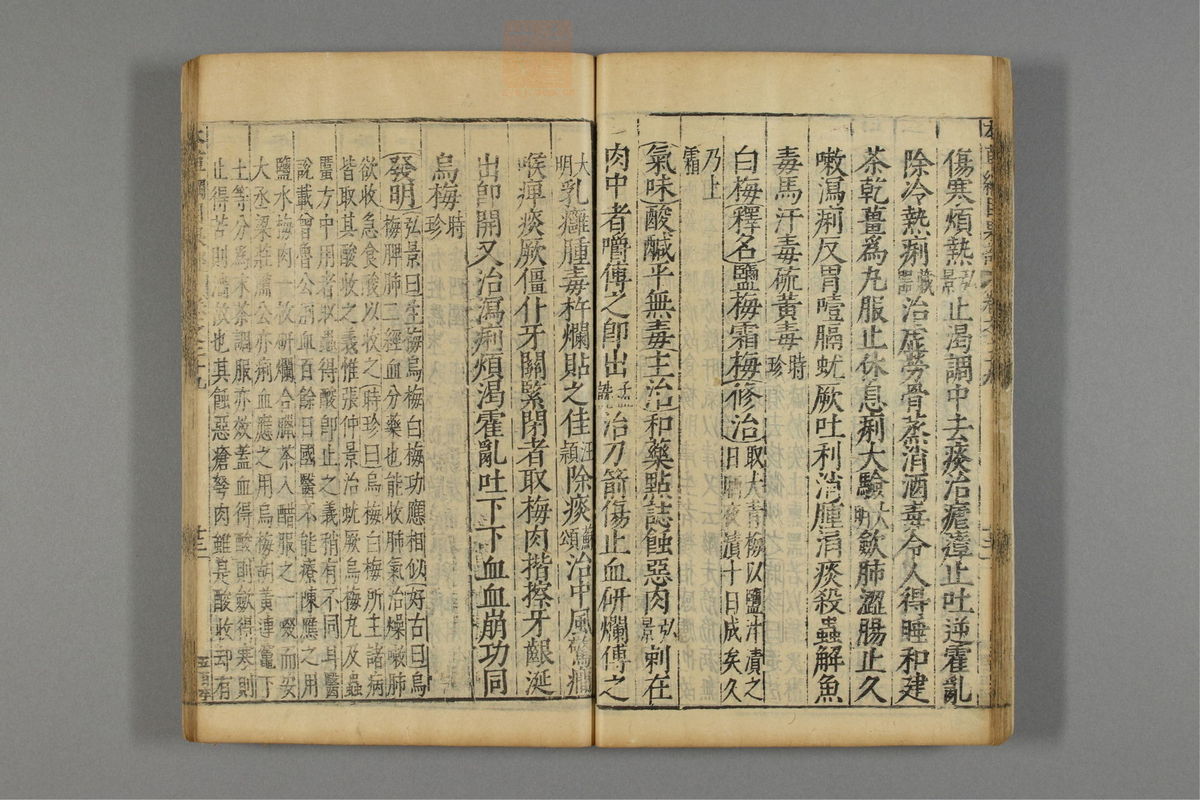 傷寒煩熱弘景止渴調中去痰治瘧瘴止吐逆霍亂
除冷熱痢藏器治虛勞骨蒸消酒毒令人得睡和建
茶乾薑爲丸服止休息痢大驗大明斂肺澀腸止久
嗽瀉痢反胃噎膈蚘厥吐利消腫涌痰殺蟲解魚
毒馬汗毒硫黃毒時珍
白梅釋名鹽梅霜梅修治取大青梅以鹽汁漬之
日晒夜漬十日成矣久
乃上
霜
氣味酸鹹平無毒主治和藥點誌蝕惡肉弘景刺在
肉中者嚼傅之卽出孟詵治刀箭傷止血研爛傅之
大明乳癰腫毒杵爛貼之佳汪穎除痰蘇頌治中風驚癇
喉痹痰厥僵仆牙關緊閉者取梅肉揩擦牙齦涎
出卽開又治瀉痢煩渴霍亂吐下下血血崩功同
烏梅時珍
發明弘景曰生梅烏梅白梅功應相似好古曰烏
梅脾肺二經血分藥也能收肺氣治燥嗽肺
欲收急食酸以收之時珍曰烏梅白梅所主諸病
皆取其酸收之義惟張仲景治蚘厥烏梅丸及蟲
䘌方中用者取蟲得酸卽止之義稍有不同耳醫
說載曾魯公痢血百餘日國醫不能療陳應之用
鹽水梅肉一枚研爛合臘茶入醋服之一啜而安
大丞梁莊肅公亦痢血應之用烏梅胡黃連竈下
土等分爲末茶調服亦效蓋血得酸則斂得寒則
止得苦則澀故也其蝕惡瘡弩肉雖是酸收却有